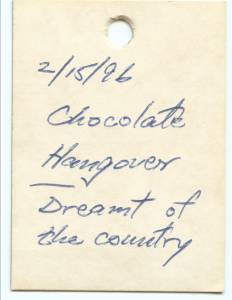 2/15/96
Chocolate
Hangover
—
Dreamt of
the country